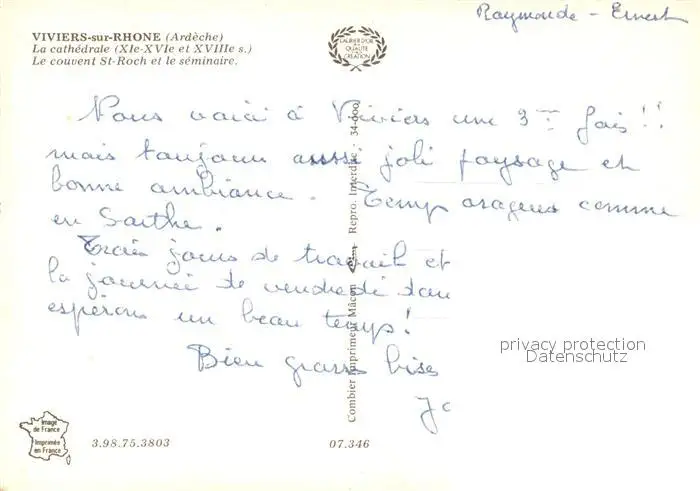 Raymonde - Ernest
VIVIERS-sur-RHONE (Ardèche)
La cathédrale (XIe-XVIe et XVIIIe s.)
Le couvent St-Roch et le séminaire.
LAURIER D'OR
DE LA
QUALITÉ
CRÉATION
Nous voici à Viviers une 3me fois !!
mais toujours aussi joli paysage et
bonne ambiance. Temps orageux comme
en Sarthe.
Trois jours de travail et
la journée de vendredi dan
espérons un beau temps!
Bien grosses bises
Combier Imprimeur Mâcon
Repro. Interdite, 34-000
privacy protection
Datenschutz
Image
de France
Imprimée
en France
3.98.75.3803
07.346